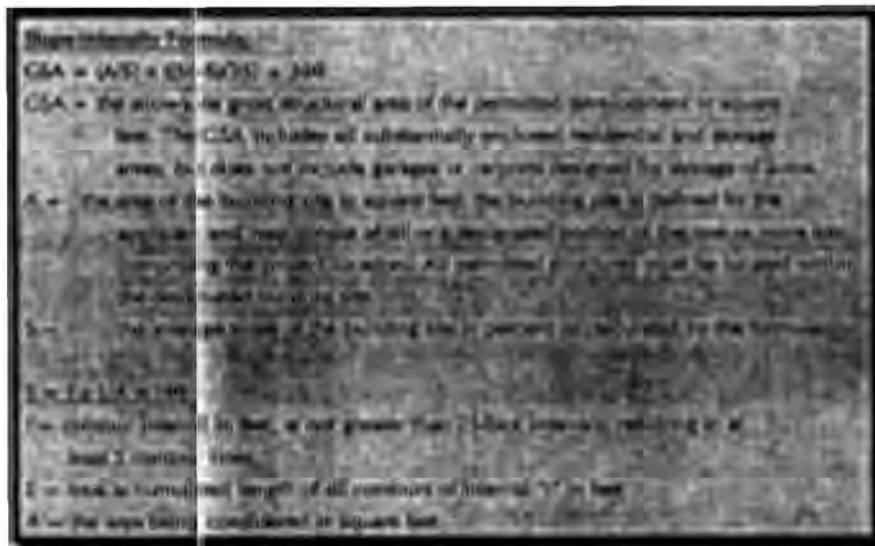 Slope Intensity Formula:
GSA = (A/5) x ((50-S)/35) + 500
GSA = the allowable gross structural area of the permitted development in square
feet. The GSA includes all substantially enclosed residential and storage
areas, but does not include garages or carports designed for storage of autos.
A = the area of the building site in square feet. the building site is defined by the
applicant and may consist of all or a designated portion of the one or more lots
comprising the project location. All permitted structures must be located within
the designated building site.
S = the average slope of the building site in percent as calculated by the formula:
S = I x L/A x 100
I = contour interval in feet, at not greater than 25-foot intervals, resulting in at
least 5 contour lines
L = total accumulated length of all contours of interval "I" in feet
A = the area being considered in square feet